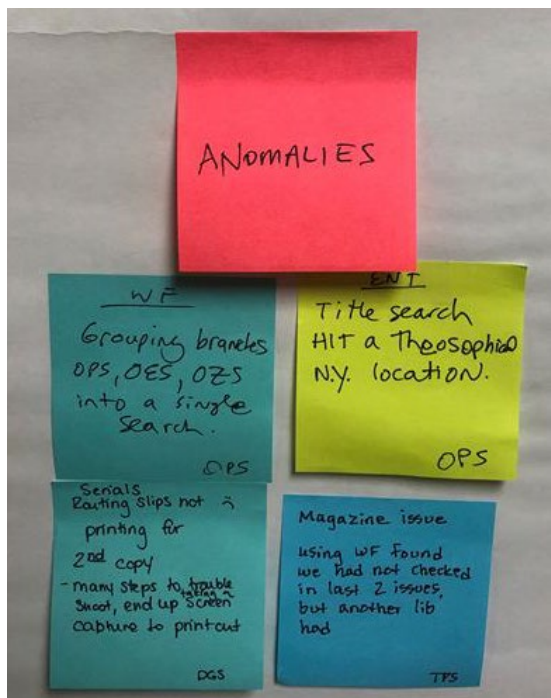 ANOMALIES
WF
Grouping branches
OPS, OES, OZS
into a single
search.
OPS
ENT
Title search
HIT a Theosophical
N.Y. location.
OPS
Serials
Routing slips not
printing for
2nd copy
- many steps to trouble
shoot, end up taking a screen
capture to print out
DGS
Magazine issue
using WF found
we had not checked
in last 2 issues,
but another lib
had
TPS